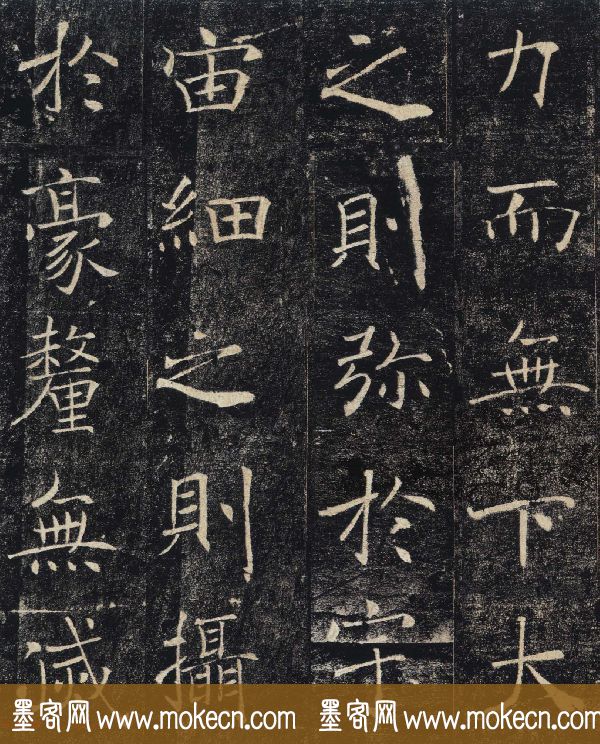 力而無下大
之則弥於宇
宙細之則攝
於豪釐無滅
墨客网 www.mokecn.com 墨客网 www.mokecn.com